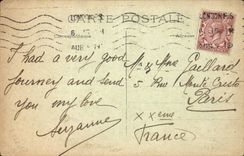 CARTE POSTALE
LONDON F.S
I had a very good
journey and send
you my love
Suzanne
Mr & Mme Gaillard
5 Rue Monte Cristo
Paris
XXeme
France